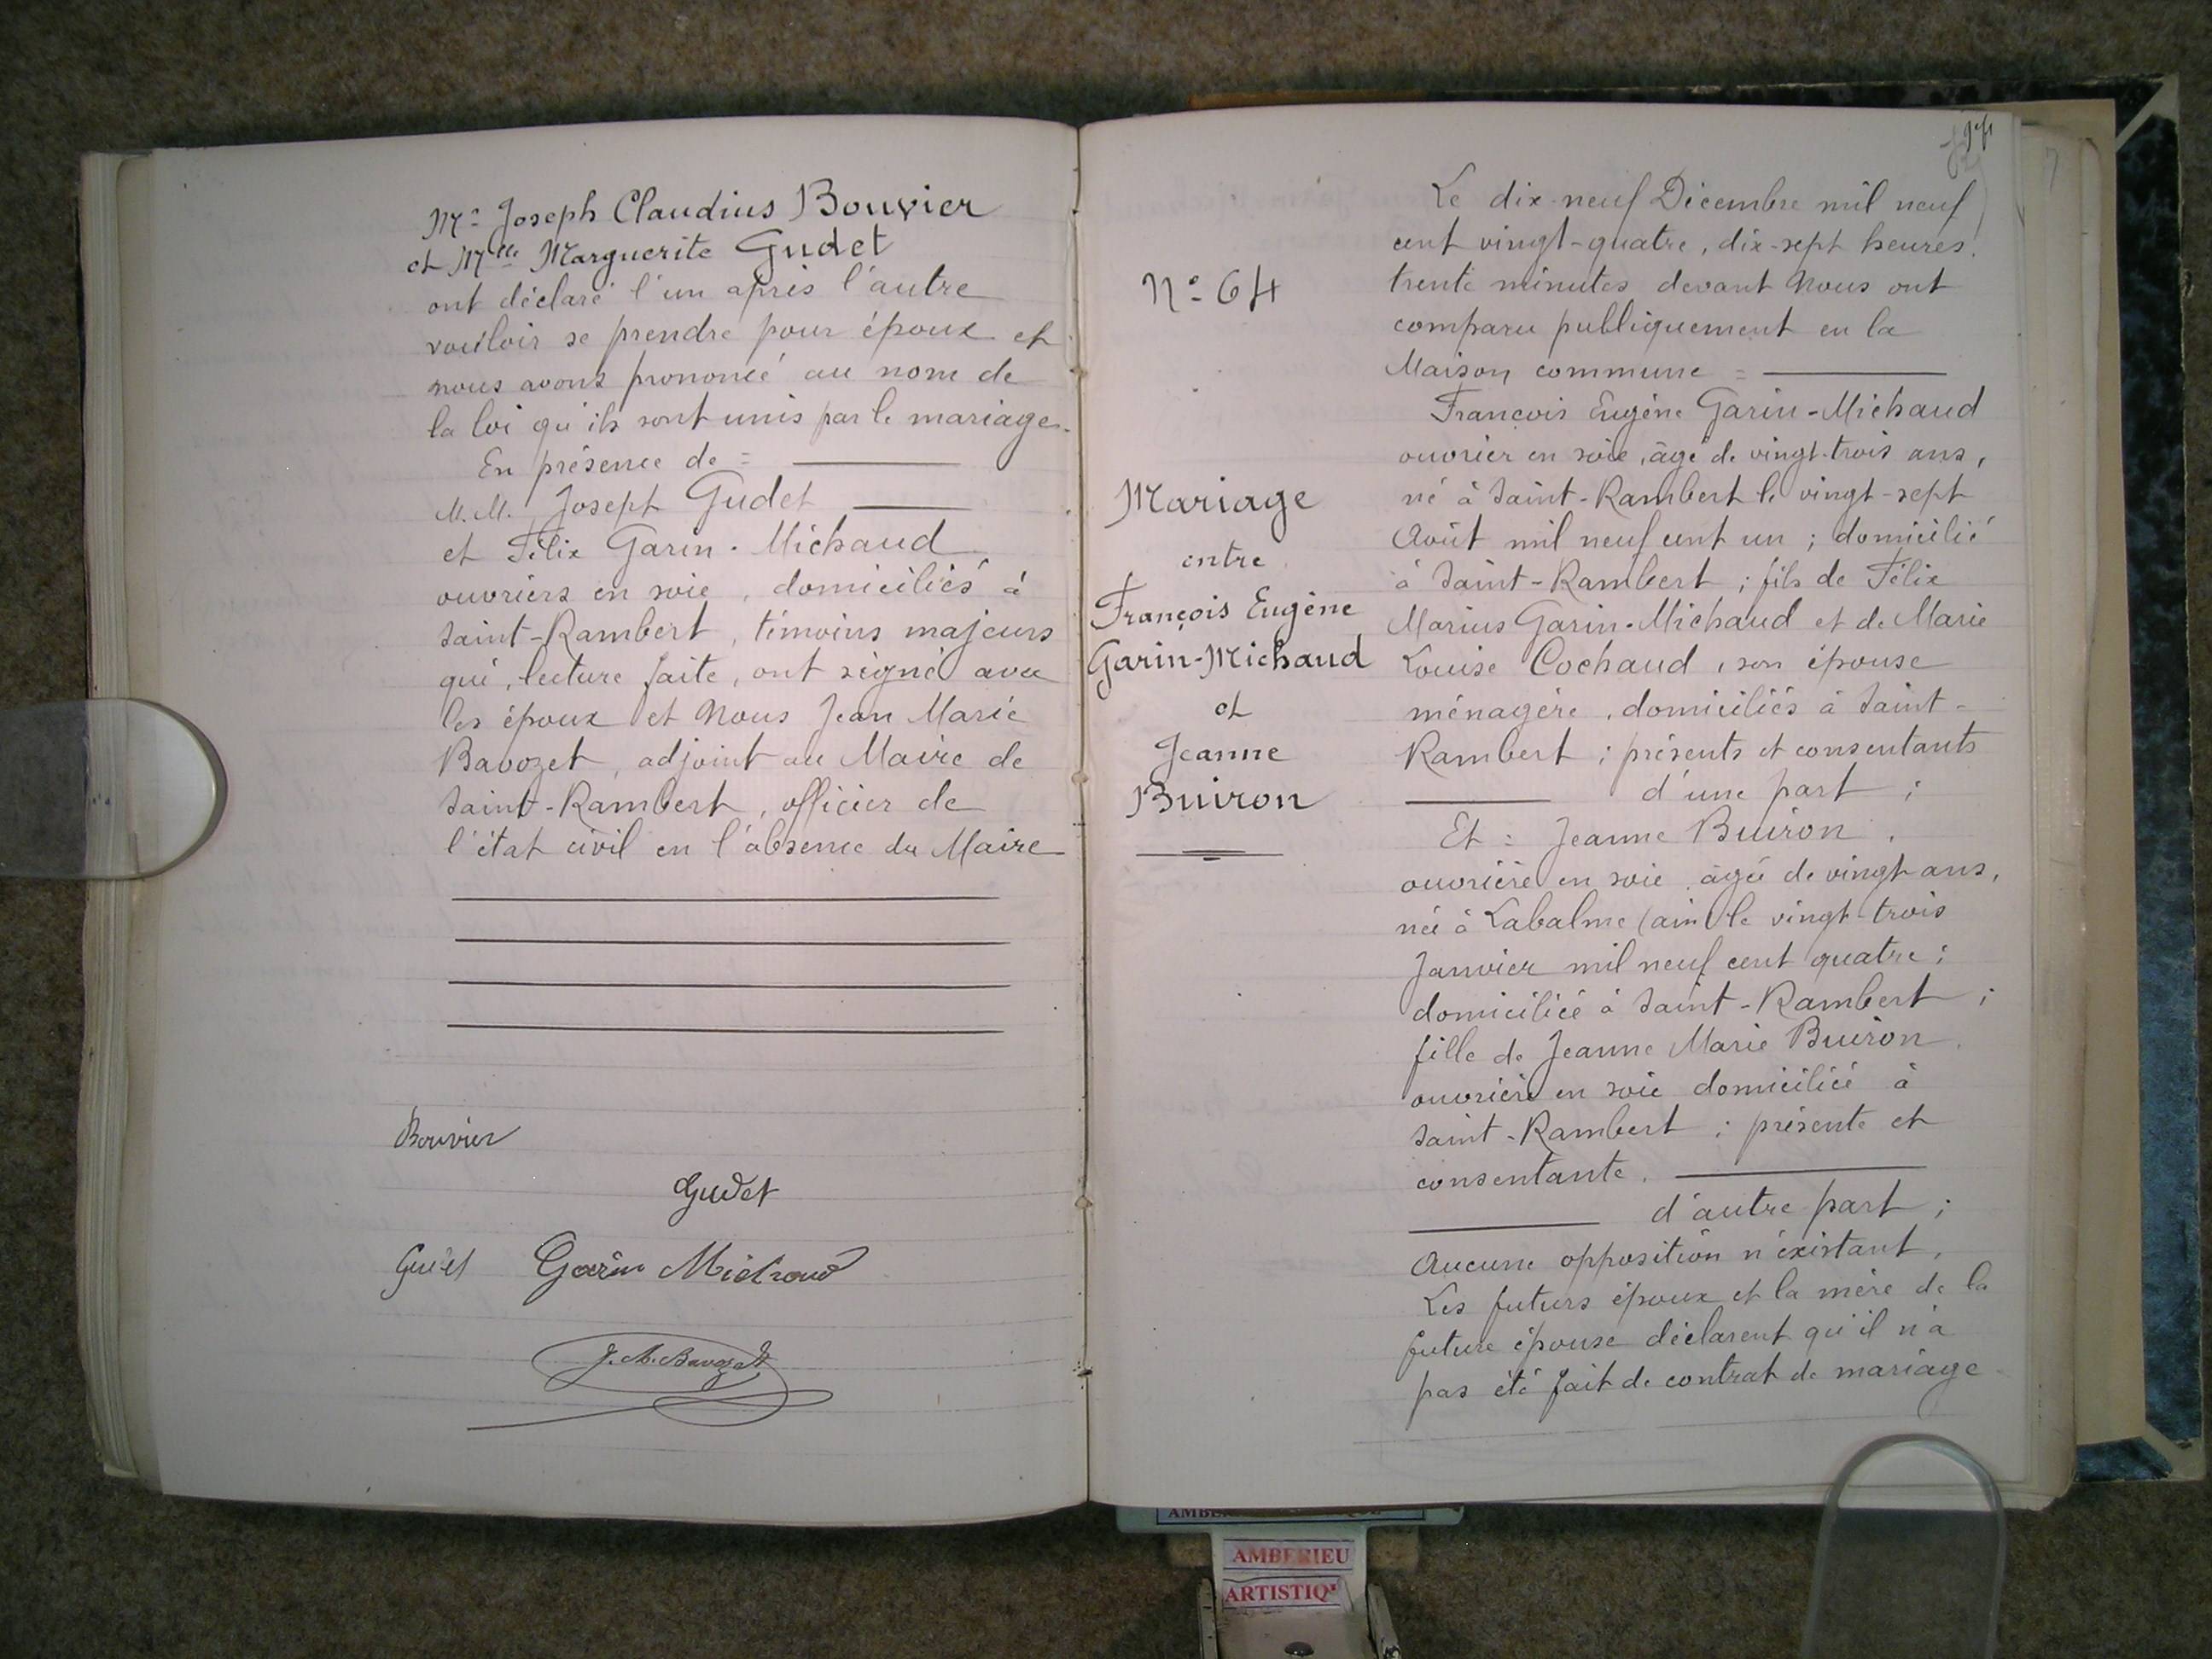 Mr Joseph Claudius Bouvier
et Mlle Marguerite Gudet
ont déclaré l'un après l'autre
vouloir se prendre pour époux et
nous avons prononcé au nom de
la loi qu'ils sont unis par le mariage.
En présence de =
M.M. Joseph Gudet
et Félix Garin-Michaud
ouvriers en soie, domiciliés à
Saint-Rambert, témoins majeurs
qui, lecture faite, ont signé avec
les époux et Nous Jean Marie
Bavozet, adjoint au Maire de
Saint-Rambert, officier de
l'état civil en l'absence du Maire
Bouvier
Gudet
Gudet Garin Michaud
J. M. Bavozet
No 64
Mariage
entre
François Eugène
Garin-Michaud
et
Jeanne
Buiron
Le dix-neuf Décembre mil neuf
cent vingt-quatre, dix-sept heures
trente minutes devant Nous ont
comparu publiquement en la
Maison commune =
François Eugène Garin-Michaud
ouvrier en soie, âgé de vingt-trois ans,
né à Saint-Rambert le vingt-sept
Août mil neuf cent un ; domicilié
à Saint-Rambert ; fils de Félix
Marius Garin-Michaud et de Marie
Louise Cochaud, son épouse
ménagère, domiciliés à Saint-
Rambert ; présents et consentants
d'une part ;
Et : Jeanne Buiron,
ouvrière en soie, âgée de vingt ans,
née à Labalme (ain) le vingt-trois
Janvier mil neuf cent quatre ;
domiciliée à Saint-Rambert ;
fille de Jeanne Marie Buiron,
ouvrière en soie domiciliée à
Saint-Rambert ; présente et
consentante.
d'autre part ;
Aucune opposition n'existant,
Les futurs époux et la mère de la
future épouse déclarent qu'il n'a
pas été fait de contrat de mariage
AMBERIEU
ARTISTIQ